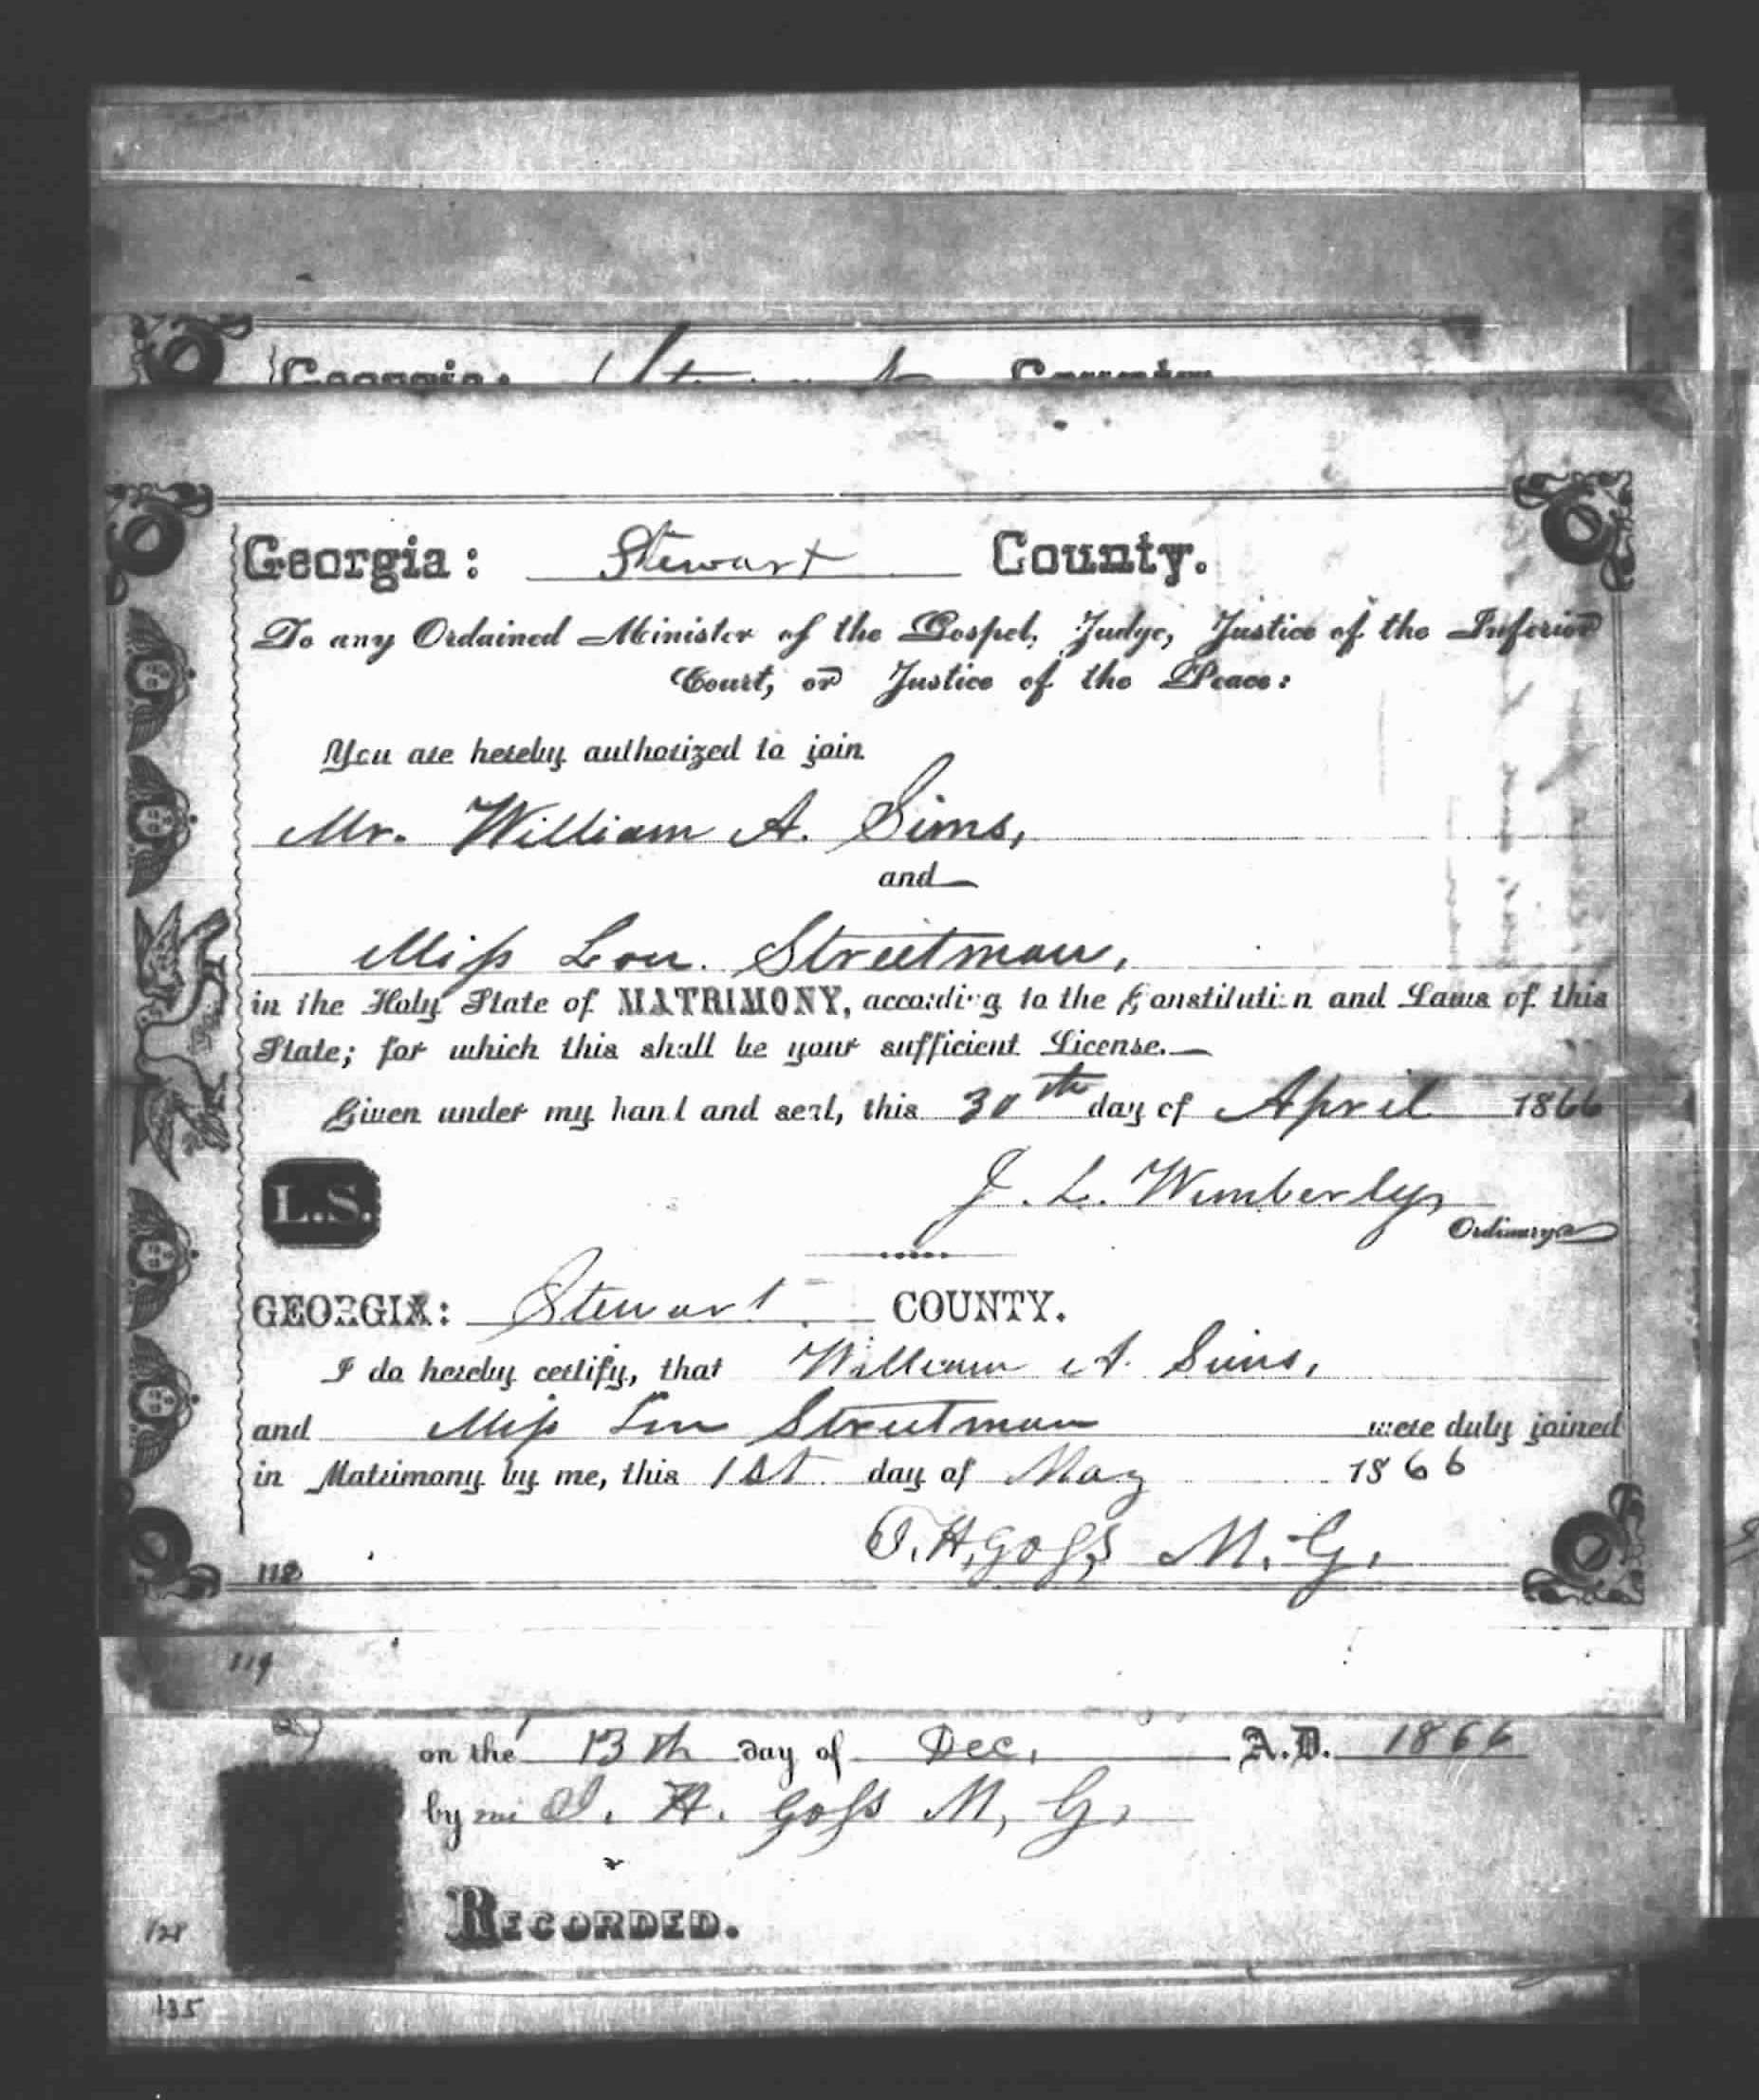 Georgia: Stewart County.
Georgia: Stewart County.
To any Ordained Minister of the Gospel, Judge, Justice of the Inferior
Court, or Justice of the Peace:
You are hereby authorized to join
Mr. William A. Sims,
and
Miss Lou. Streetman,
in the Holy State of MATRIMONY, according to the Constitution and Laws of this
State; for which this shall be your sufficient License.
Given under my hand and seal, this 30th day of April 1866
J. L. Wimberly,
L.S.
Ordinary
GEORGIA: Stewart COUNTY.
I do hereby certify, that William A. Sims,
and Miss Lou Streetman were duly joined
in Matrimony by me, this 1st day of May 1866
T. H. Goss M. G.
118
119
on the 13th day of Dec, A.D. 1866
by me T. H. Goss M, G,
RECORDED.
128
135